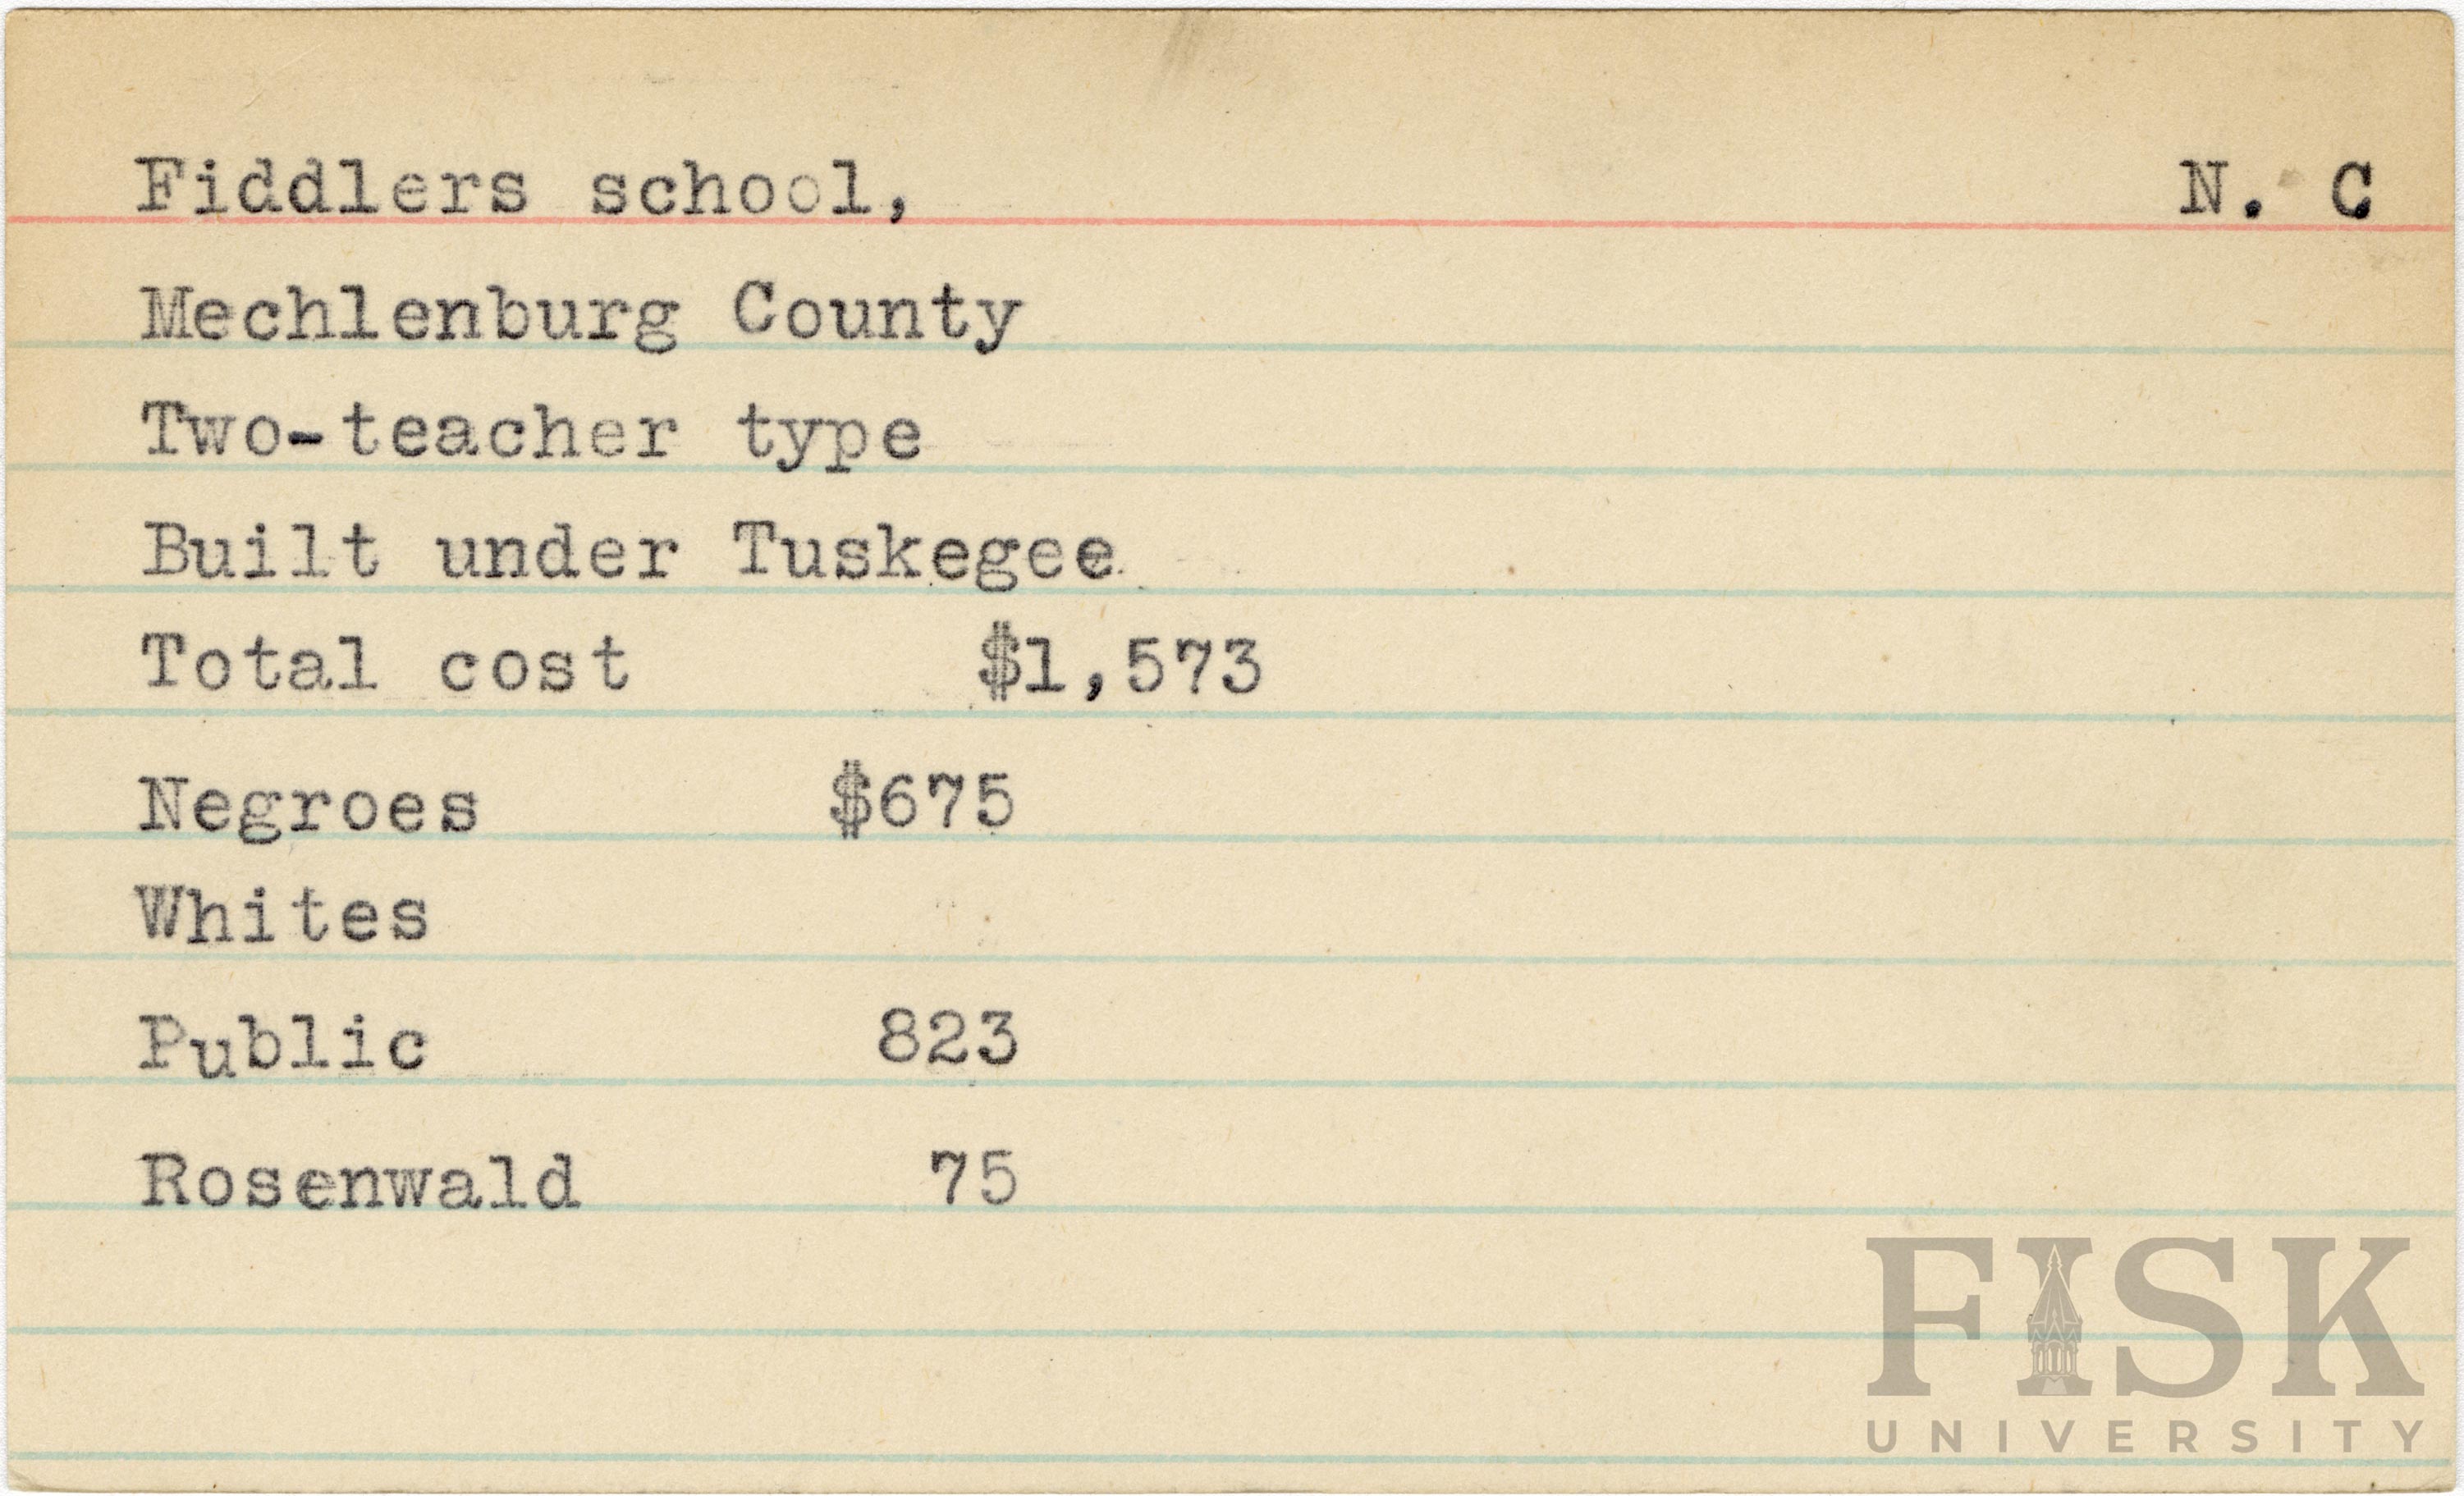 Fiddlers school, N. C
Mechlenburg County
Two-teacher type
Built under Tuskegee
Total cost $1,573
Negroes $675
Whites
Public 823
Rosenwald 75
FISK
UNIVERSITY